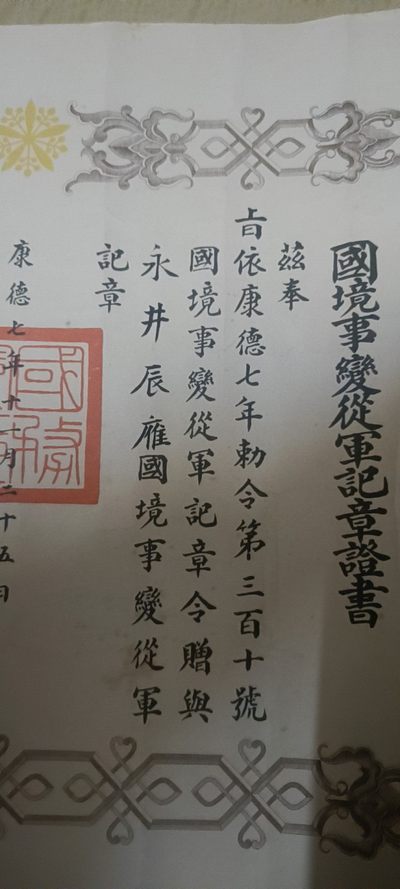 國境事變從軍記章證書
茲奉
旨依康德七年勅令第三百十號
國境事變從軍記章令贈與
永井辰雁國境事變從軍
記章
康德七年十一月二十五日